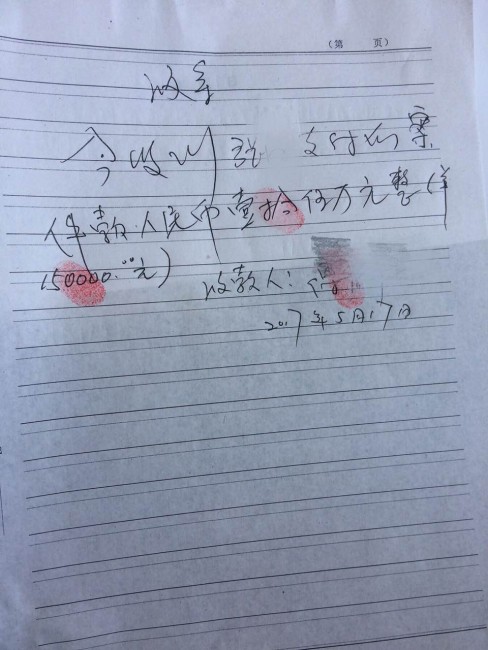 （第 页）
收条
今收到张 支付的案
件款人民币壹拾伍万元整（￥
150000.00元）
收款人：
2017年5月17日